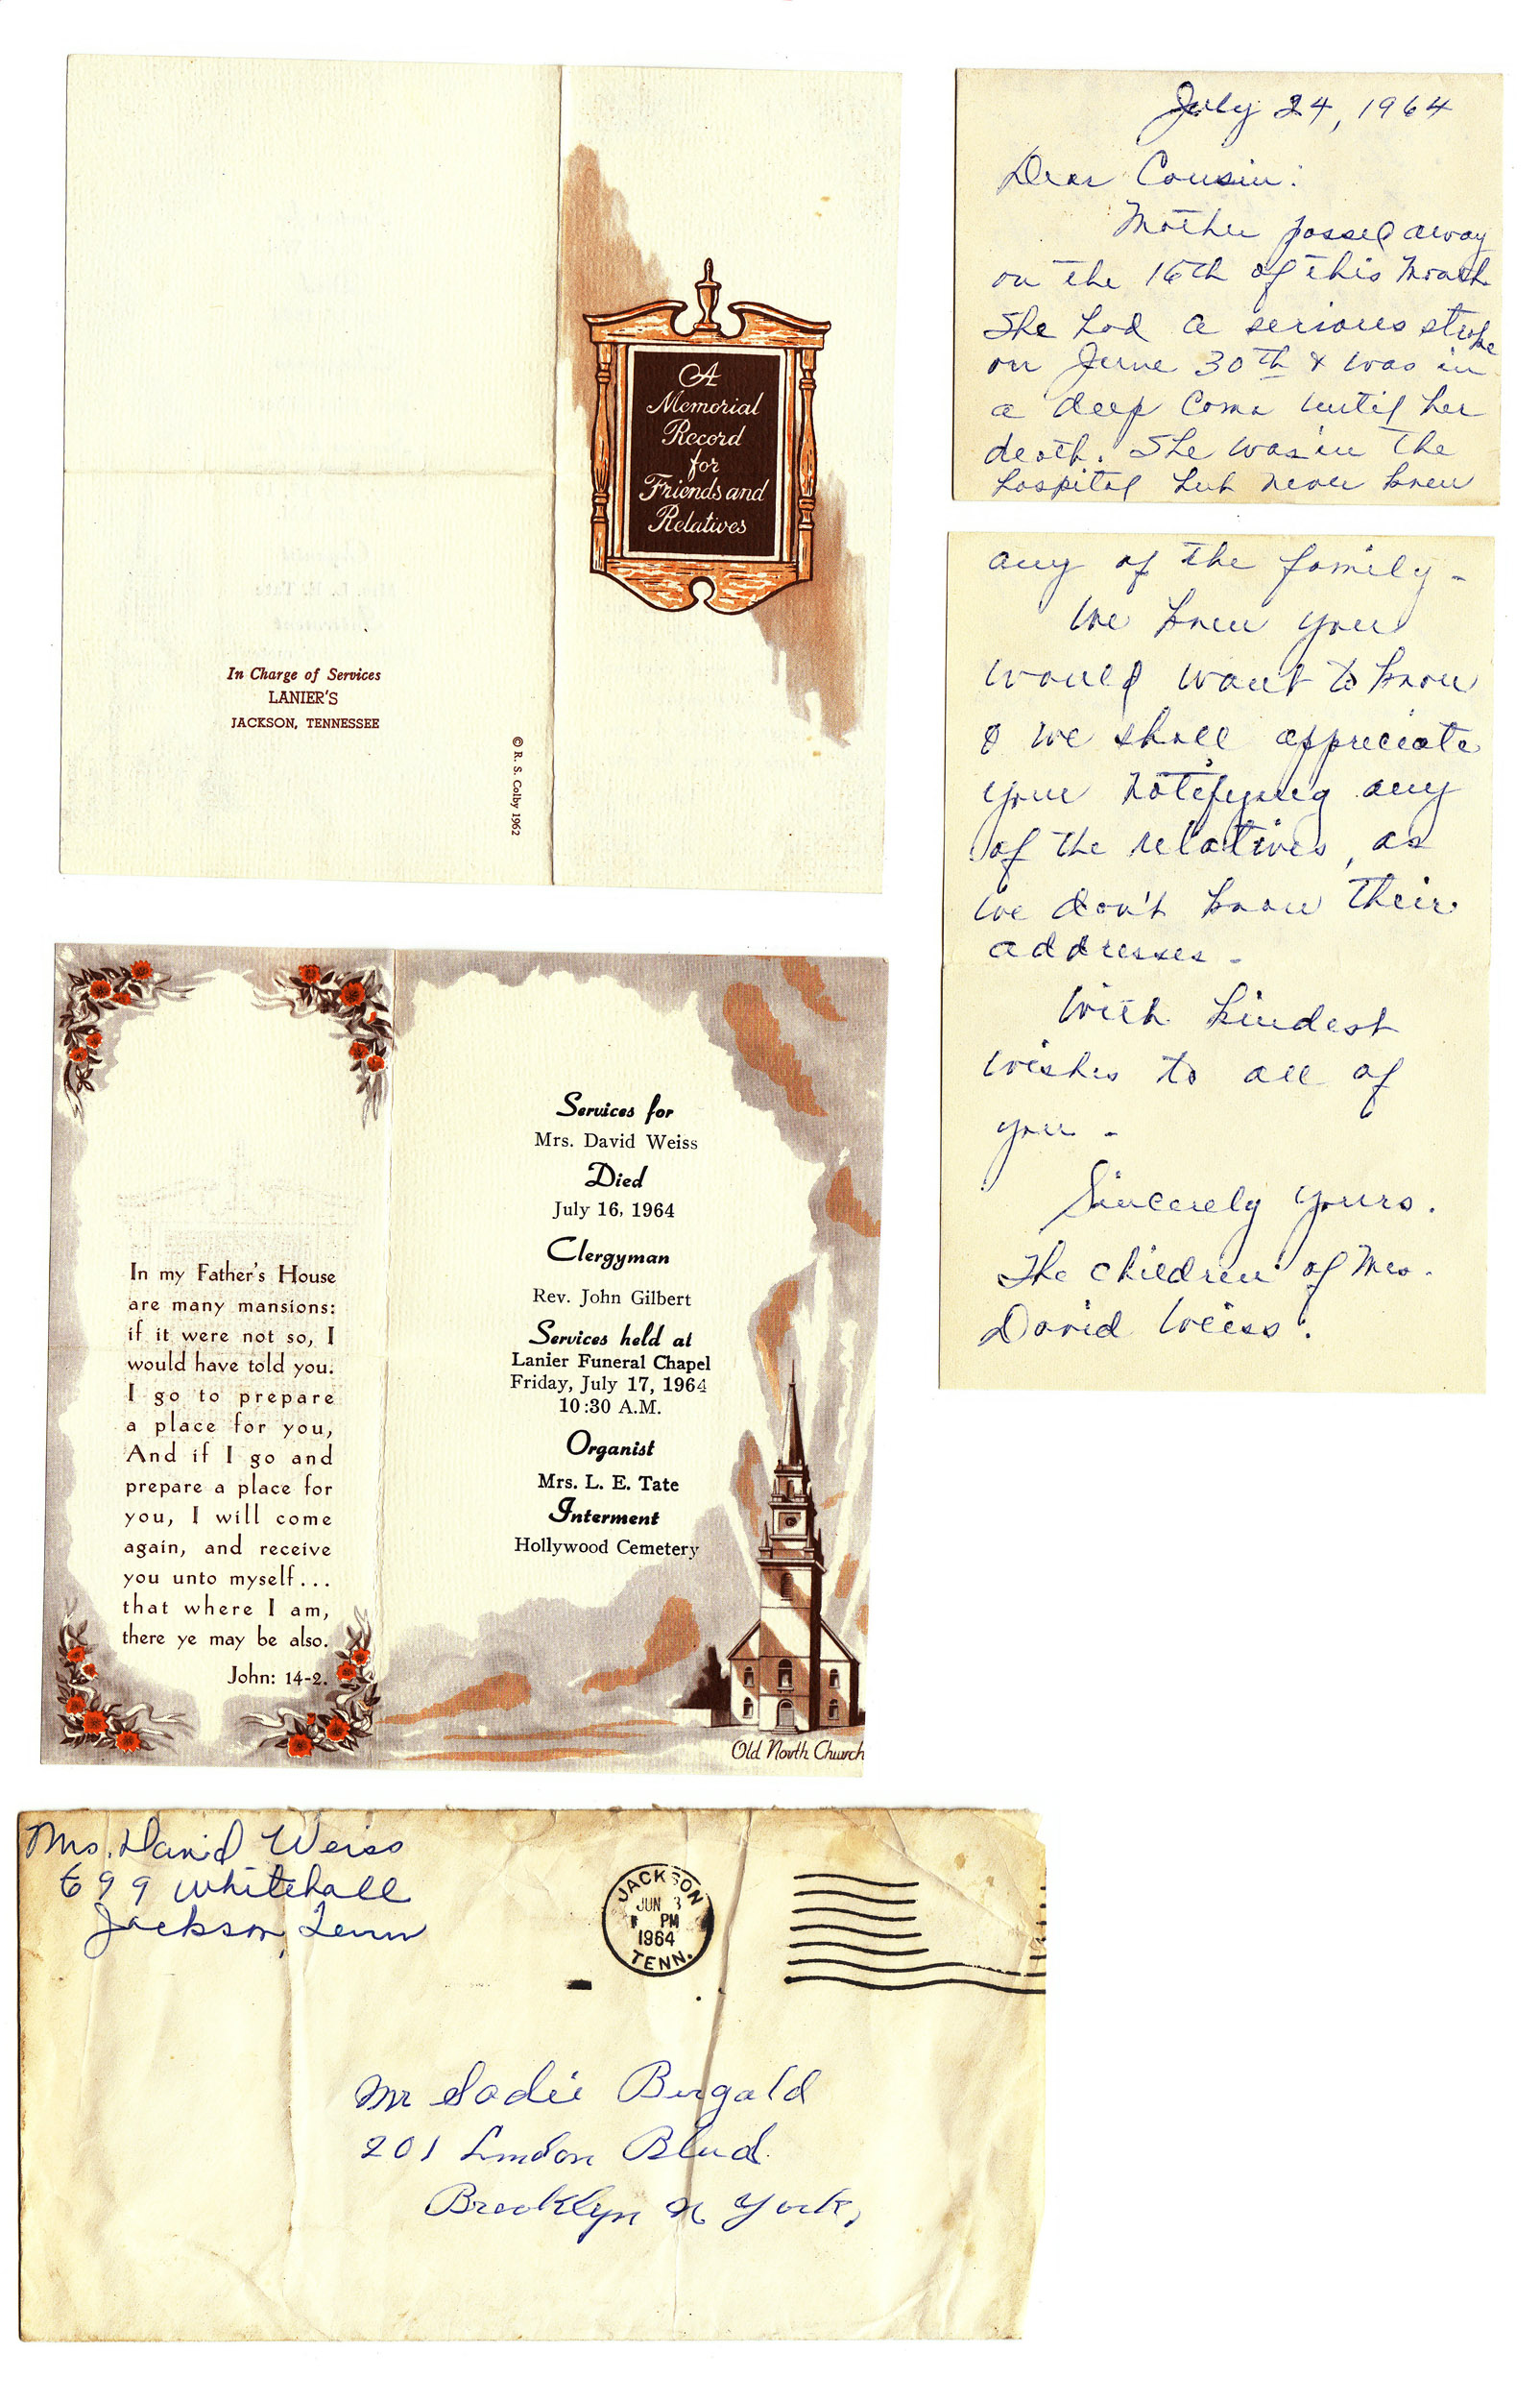 A
Memorial
Record
for
Friends and
Relatives
In Charge of Services
LANIER'S
JACKSON, TENNESSEE
© R. S. Colby 1962
July 24, 1964
Dear Cousin:
Mother passed away
on the 16th of this Month
She had a serious stroke
on June 30th & was in
a deep Coma until her
death. She was in the
hospital but never knew
any of the family -
We knew you
would want to know
& we shall appreciate
your notifying any
of the relatives, as
we don't know their
addresses -
With kindest
wishes to all of
you -
Sincerely yours.
The children of Mrs.
David Weiss.
In my Father's House
are many mansions:
if it were not so, I
would have told you.
I go to prepare
a place for you,
And if I go and
prepare a place for
you, I will come
again, and receive
you unto myself...
that where I am,
there ye may be also.
John: 14-2.
Services for
Mrs. David Weiss
Died
July 16, 1964
Clergyman
Rev. John Gilbert
Services held at
Lanier Funeral Chapel
Friday, July 17, 1964
10:30 A.M.
Organist
Mrs. L. E. Tate
Interment
Hollywood Cemetery
Old North Church
Mrs. David Weiss
699 Whitehall
Jackson, Tenn
JACKSON
JUN 3
PM
1964
TENN.
Mr Sadie Bergald
201 Linden Blvd.
Brooklyn N York,